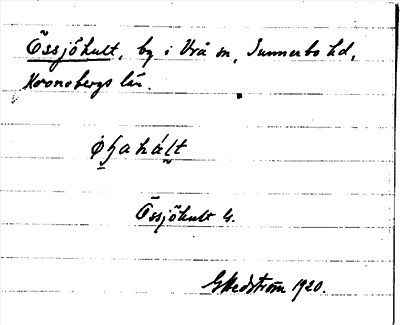 Össjöhult, by i Vrå sn, Sunnerbo hd,
Kronobergs län.
Össjöhult 4.
1920.